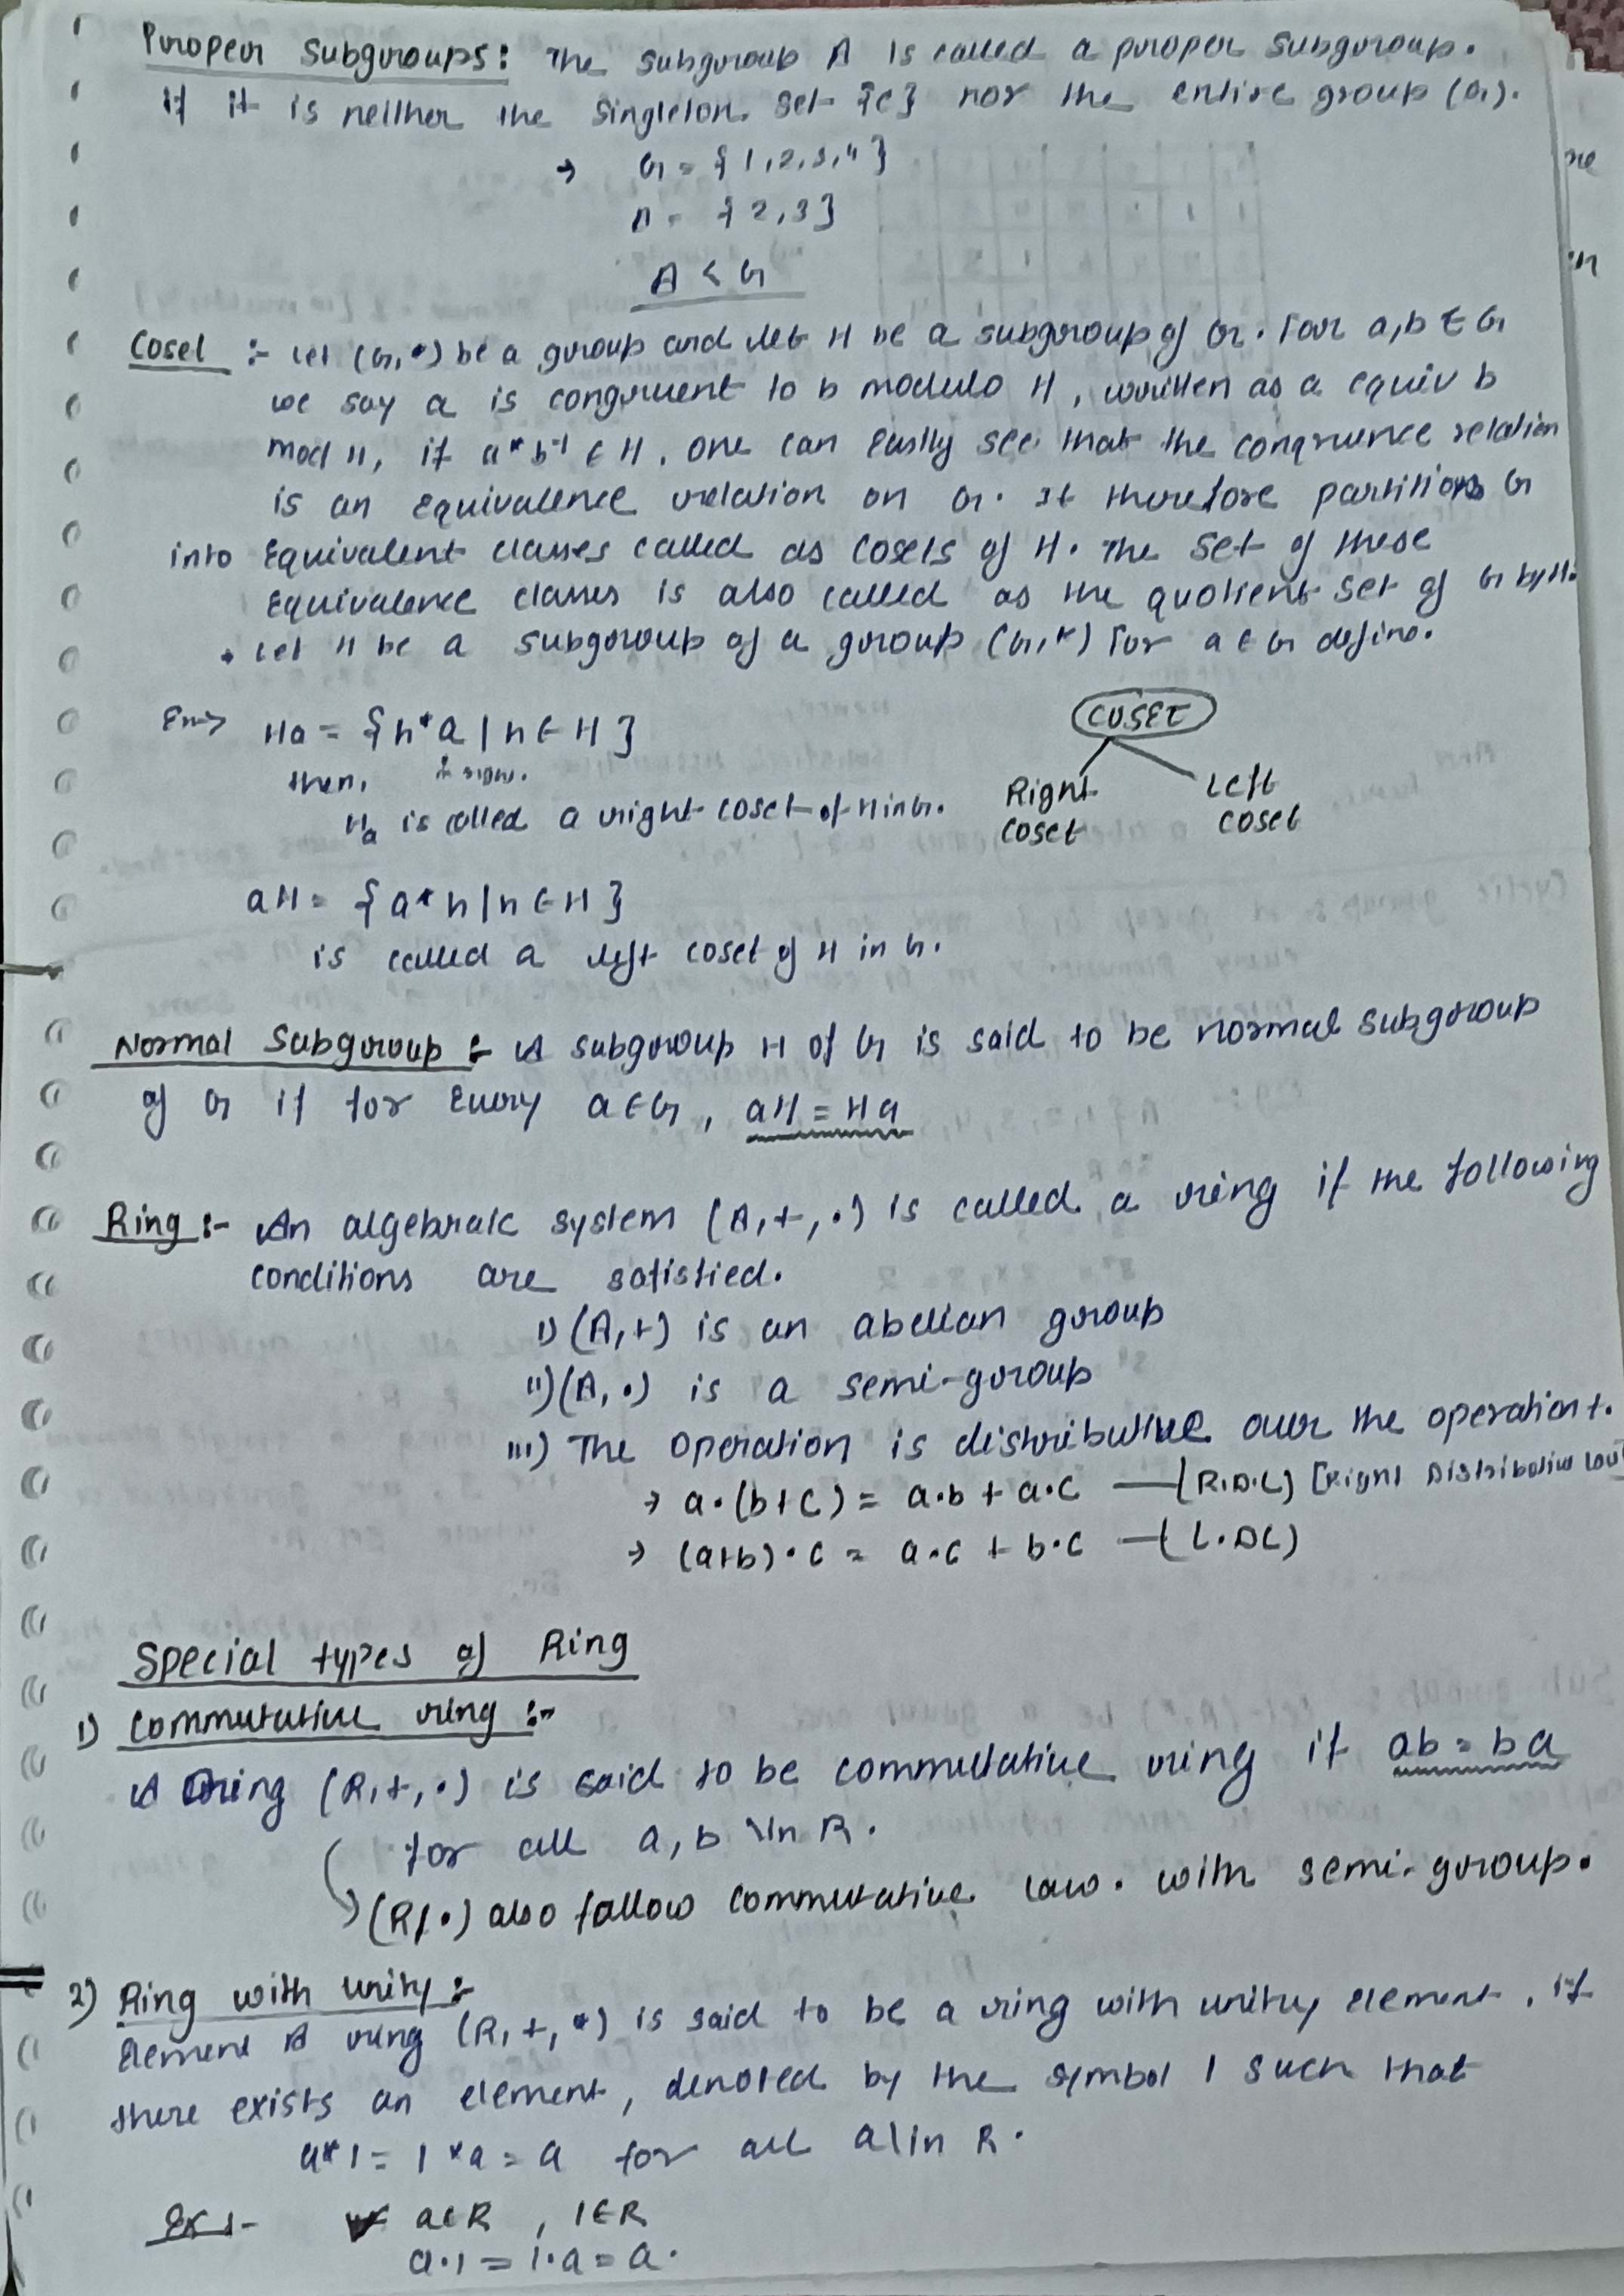 Proper Subgroups: The subgroup A is called a proper subgroup.
If it is neither the singleton set {e} nor the entire group (G).
→ G = {1,2,3,4}
A = {2,3}
A < G
Coset :- Let (G,*) be a group and let H be a subgroup of G. For a,b ∈ G
we say a is congruent to b modulo H, written as a equiv b
mod H, if a*b⁻¹ ∈ H. One can easily see that the congruence relation
is an equivalence relation on G. It therefore partitions G
into Equivalent classes called as cosets of H. The set of these
Equivalence classes is also called as the quotient set of G by H.
• Let H be a subgroup of a group (G,*) for a ∈ G define.
Ex→ Ha = {h*a | h ∈ H}
then,
Ha is called a right coset of H in G.
COSET
Right Coset
Left Coset
aH = {a*h | h ∈ H}
is called a left coset of H in G.
Normal Subgroup :- A subgroup H of G is said to be normal subgroup
of G if for every a ∈ G, aH = Ha
Ring :- An algebraic system (A,+,•) is called a ring if the following
conditions are satisfied.
i) (A,+) is an abelian group
ii) (A,•) is a semi-group
iii) The operation is distributive over the operation +.
→ a•(b+c) = a•b + a•c —(R.D.L) [Right Distributive Law
→ (a+b)•c = a•c + b•c —(L.DL)
Special types of Ring
1) Commutative ring :-
A ring (R,+,•) is said to be commutative ring if ab = ba
for all a,b \in R.
→ (R,•) also follow commutative law. with semi-group.
2) Ring with unity :-
Element A ring (R,+,*) is said to be a ring with unity element, if
there exists an element, denoted by the symbol 1 such that
a*1 = 1*a = a for all a\in R.
Ex :- ∀ a∈R , 1∈R
a•1 = 1•a = a.